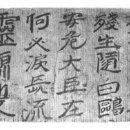 殘生隨白鷗
安危大臣在
何必淚長流